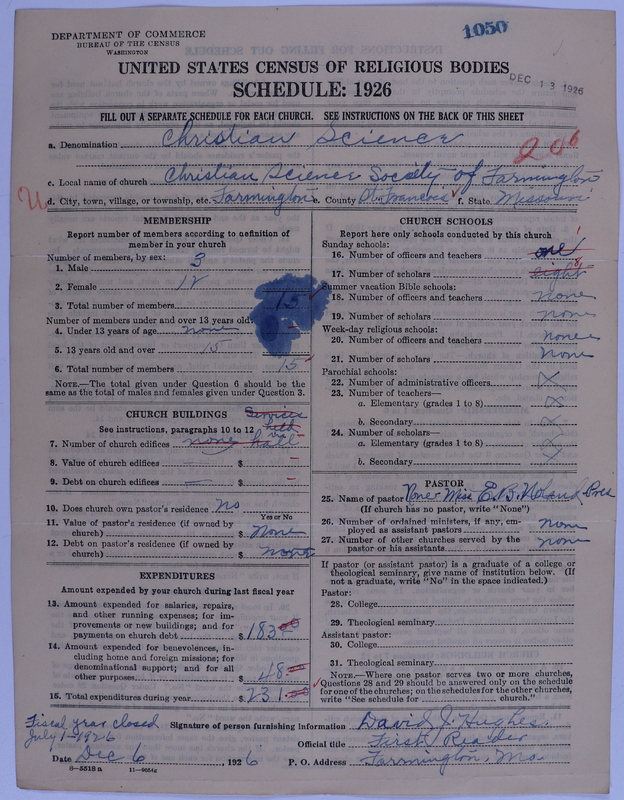 DEPARTMENT OF COMMERCE
BUREAU OF THE CENSUS
WASHINGTON
1050
UNITED STATES CENSUS OF RELIGIOUS BODIES
DEC 13 1926
SCHEDULE: 1926
FILL OUT A SEPARATE SCHEDULE FOR EACH CHURCH. SEE INSTRUCTIONS ON THE BACK OF THIS SHEET
a. Denomination Christian Science
206
c. Local name of church Christian Science Society of Farmington
d. City, town, village, or township, etc. Farmington e. County St. Francois f. State Missouri
MEMBERSHIP
Report number of members according to definition of
member in your church
Number of members, by sex:
1. Male 3
2. Female 12
3. Total number of members 15
Number of members under and over 13 years old:
4. Under 13 years of age none
5. 13 years old and over 15
6. Total number of members 15
NOTE.—The total given under Question 6 should be the
same as the total of males and females given under Question 3.
CHURCH BUILDINGS
See instructions, paragraphs 10 to 12
Services
held
7. Number of church edifices none hall
8. Value of church edifices — $ –
9. Debt on church edifices — $ –
10. Does church own pastor's residence No
Yes or No
11. Value of pastor's residence (if owned by
church) $ None
12. Debt on pastor's residence (if owned by
church) $ none
EXPENDITURES
Amount expended by your church during last fiscal year
13. Amount expended for salaries, repairs,
and other running expenses; for im-
provements or new buildings; and for
payments on church debt $ 183.00
14. Amount expended for benevolences, in-
cluding home and foreign missions; for
denominational support; and for all
other purposes $ 48.00
15. Total expenditures during year $ 231.00
CHURCH SCHOOLS
Report here only schools conducted by this church
Sunday schools:
16. Number of officers and teachers one 1
17. Number of scholars eight 8
Summer vacation Bible schools:
18. Number of officers and teachers none
19. Number of scholars none
Week-day religious schools:
20. Number of officers and teachers none
21. Number of scholars none
Parochial schools:
22. Number of administrative officers X
23. Number of teachers—
a. Elementary (grades 1 to 8) X
b. Secondary X
24. Number of scholars—
a. Elementary (grades 1 to 8) X
b. Secondary X
PASTOR
25. Name of pastor None Miss E. B. Noland Pres
(If church has no pastor, write "None")
26. Number of ordained ministers, if any, em-
ployed as assistant pastors none
27. Number of other churches served by the
pastor or his assistants none
If pastor (or assistant pastor) is a graduate of a college or
theological seminary, give name of institution below. (If
not a graduate, write "No" in the space indicated.)
Pastor:
28. College
29. Theological seminary
Assistant pastor:
30. College
31. Theological seminary
NOTE.—Where one pastor serves two or more churches,
Questions 28 and 29 should be answered only on the schedule
for one of the churches; on the schedules for the other churches,
write "See schedule for church."
Fiscal year closed
July 1-1926
Signature of person furnishing information David J. Hughes
Official title First Reader
Date Dec 6, 1926 P. O. Address Farmington, Mo
8—5518 a 11—9054g